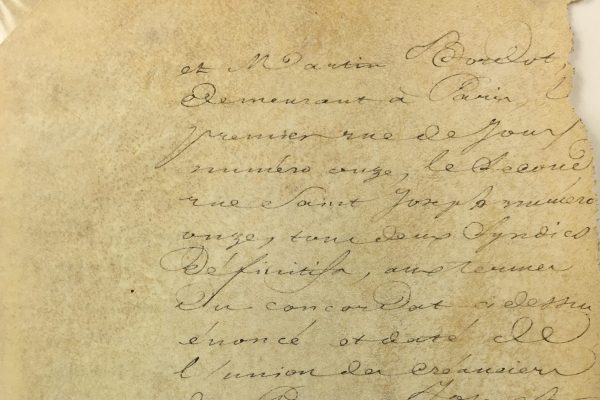 et Martin Bordot,
demeurant à Paris, l
premier rue de Jour
numéro onze, le second
rue Saint Joseph numéro
onze, tous deux Syndics
Définitifs, aux termes
du concordat ci dessus
énoncé et daté de
l'union des créanciers
de